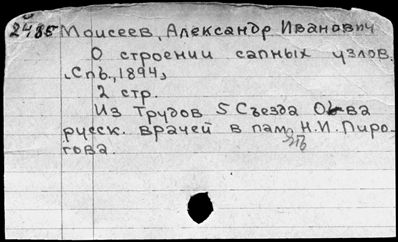 2485 Моисеев, Александр Иванович
О строении сапных узлов.
Спб., 1894,
2 стр.
Из Трудов 5 Съезда О-ва
русск. врачей в пам Н.И. Пиро-
гова.